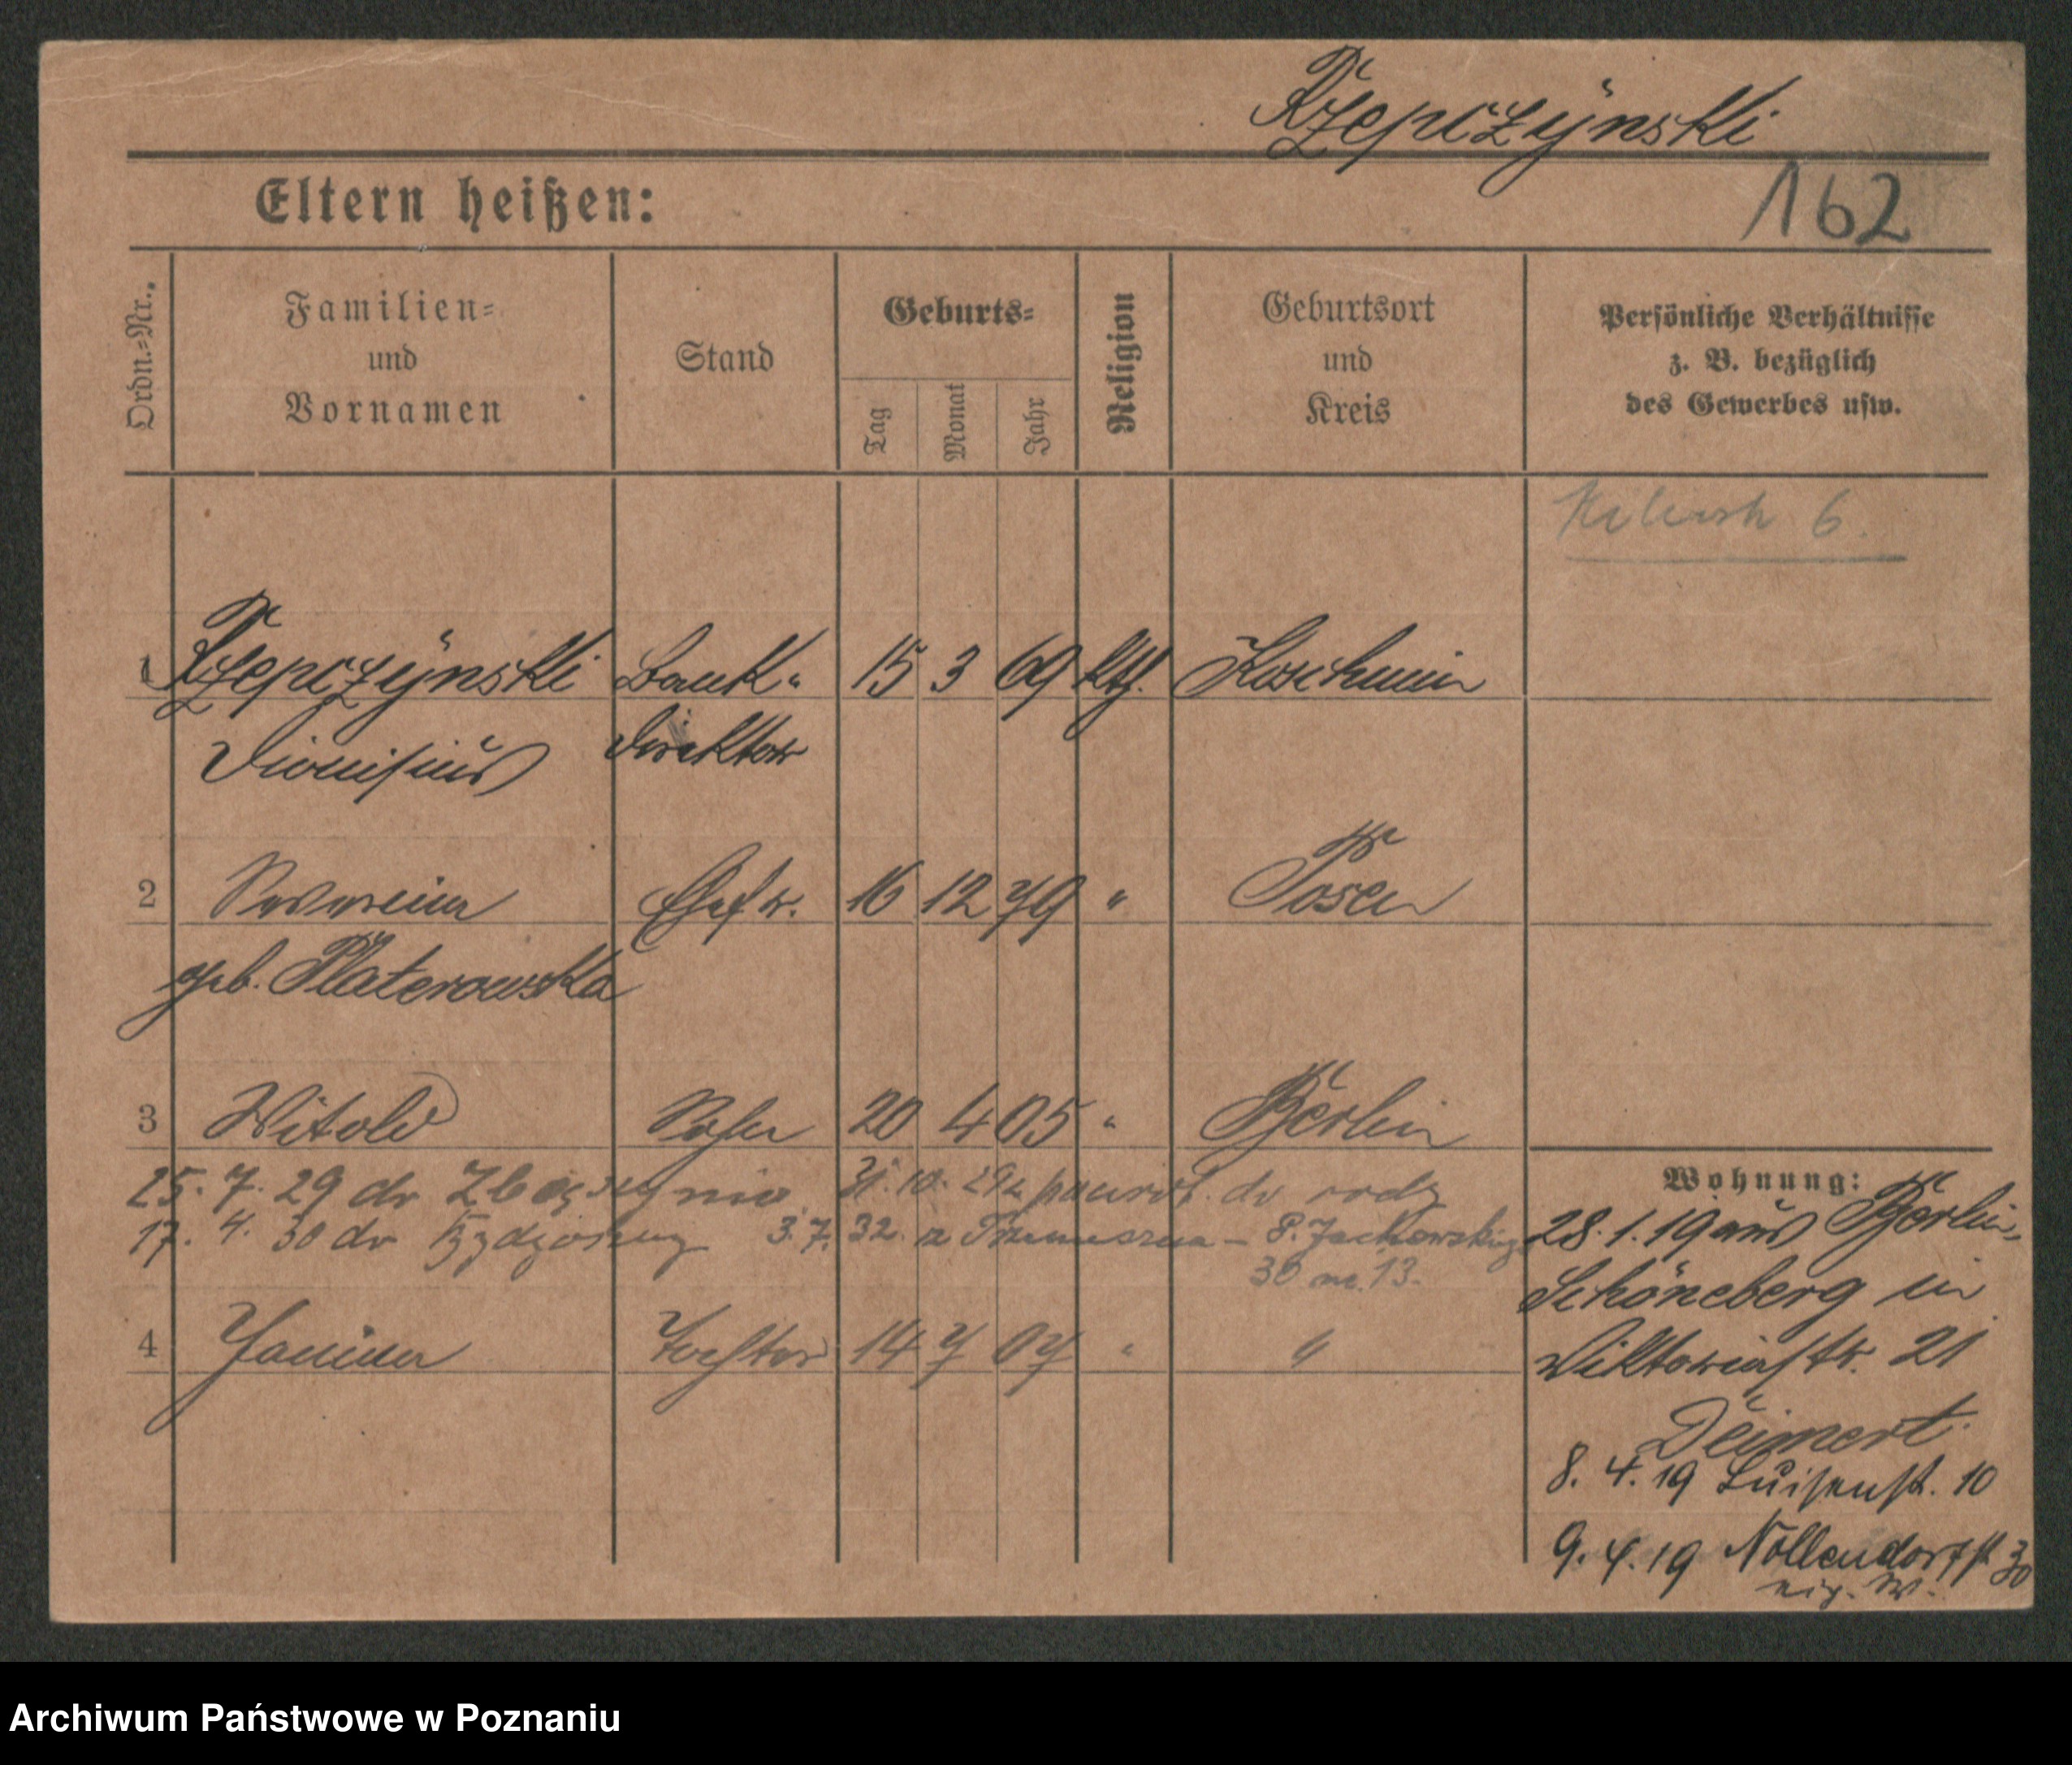 Rzepczynski
Eltern heißen:
162
Ordn.-Nr.
Familien-
und
Vornamen
Stand
Geburts-
Tag
Monat
Jahr
Religion
Geburtsort
und
Kreis
Persönliche Verhältnisse
z. B. bezüglich
des Gewerbes usw.
6.
1 Rzepczynski Bank- 15 3 69 kth. Koschmin
Dionisius Direktor
2 Ehefr. 16 12 79 " Posen
geb. Platerowska
3 Witold Sohn 20 4 05 " Berlin
25. 7. 29 do 31. 10. 29 z powrot. do
17. 4. 30 do Bydgoszczy 3. 7. 32. z Trzemeszna – P. Jackowskiego
30 m. 13.
4 Janina Tochter 14 7 07 " "
Wohnung:
28. 1. 19 aus Berlin-
Schöneberg in
Viktoriastr. 21
8. 4. 19 Luisenst. 10
9. 4. 19 Nollendorfst 30
eig. W.
Archiwum Państwowe w Poznaniu